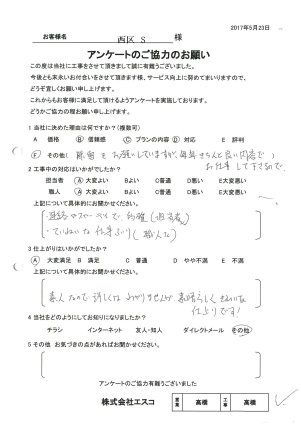 2017年5月23日
お客様名 西区 S 様
アンケートのご協力のお願い
この度は当社に工事をさせて頂きまして誠に有難うございました。
今後とも末永いお付合いをさせて頂きます様、サービス向上に努めてまいりますので、
どうぞ宜しくお願い申し上げます。
これからもお客様に満足して頂けるようアンケートを実施しております。
どうかご協力の程お願い申し上げます。
1 当社に決めた理由は何ですか?(複数可)
A 価格 B 信頼感 C プランの内容 D 対応 E 評判
F その他( お願いしていますが、毎年きちんと良い内容で
お仕事して下さるので )
2 工事中の対応はいかがでしたか?
担当者 A 大変よい B よい C普通 D悪い E大変悪い
職人 A 大変よい B よい C普通 D悪い E大変悪い
上記について具体的にお聞かせください。
・連絡がスムーズで、的確(担当者)
・ていねいな仕事ぶり(職人さん)
3 仕上がりはいかがでしたか?
A 大変満足 B 満足 C 普通 D やや不満 E 不満
上記について具体的にお聞かせください。
素人なので詳しくはわかりませんが素晴らしくきれいな
仕上りです!
4 当社をどのようにしてお知りになりましたか?
チラシ インターネット 友人・知人 ダイレクトメール その他
5 その他 お気づきの点があればお聞かせください。
アンケートのご協力有難うございました
株式会社エスコ 営業 高橋 工事 高橋